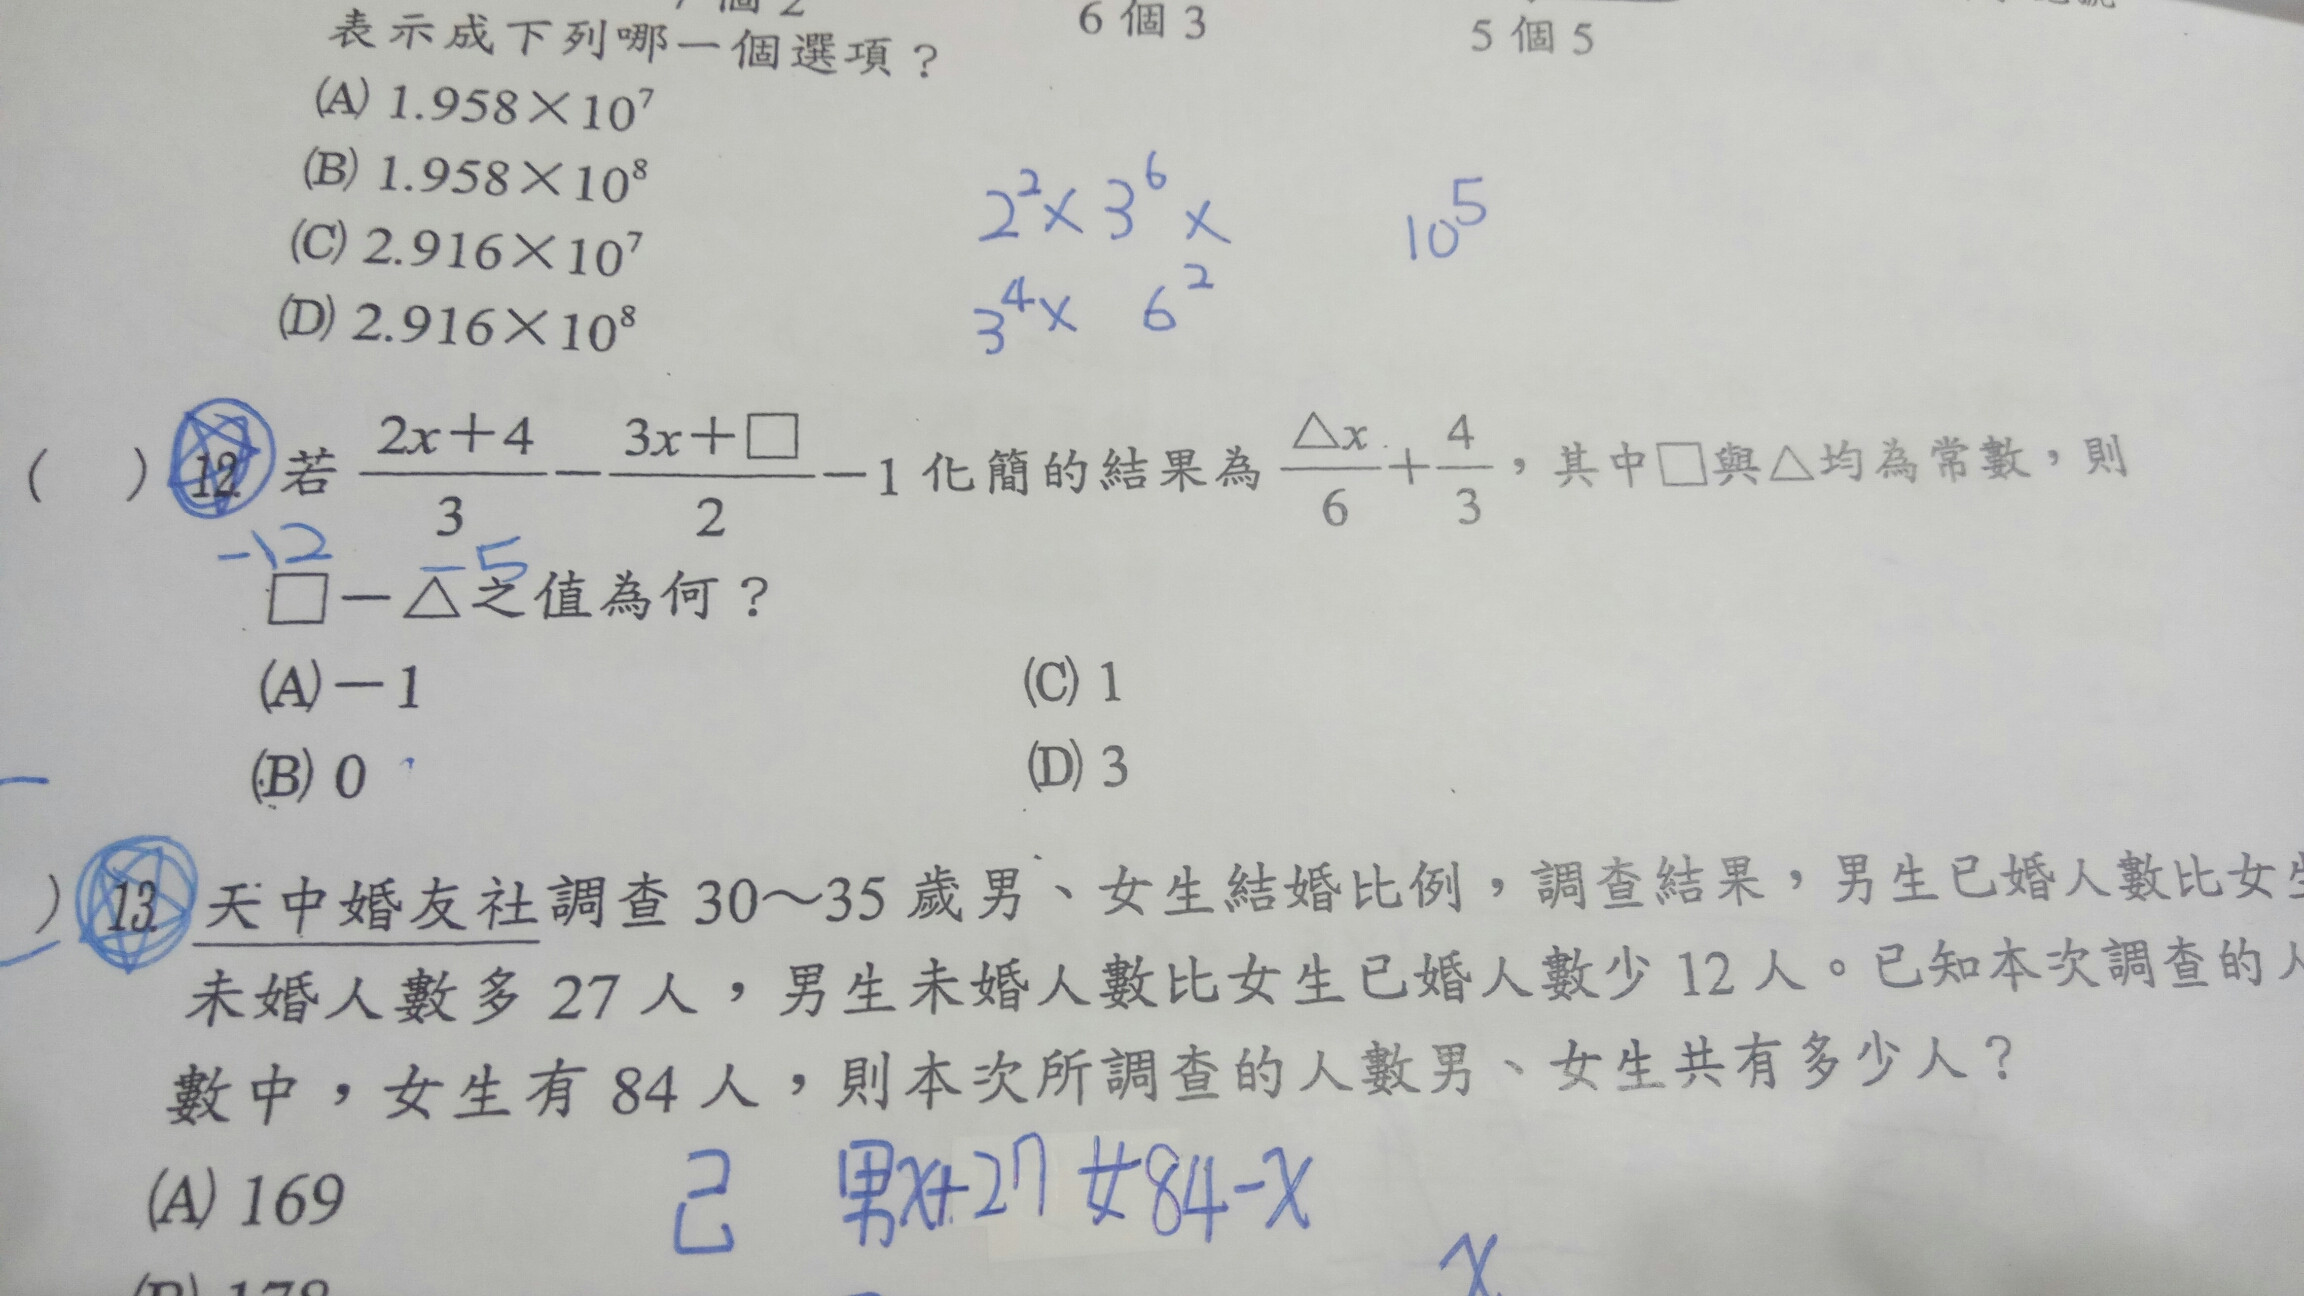 個 2
6 個 3
5 個 5
表示成下列哪一個選項？
(A) 1.958×10⁷
(B) 1.958×10⁸
(C) 2.916×10⁷
(D) 2.916×10⁸
2²× 3⁶ ×
10⁵
3⁴× 6²
( ) 12. 若 (2x+4)/3 − (3x+□)/2 − 1 化簡的結果為 △x/6 + 4/3，其中□與△均為常數，則
-12 -5
□−△之值為何？
(A) −1
(C) 1
(B) 0
(D) 3
) 13. 天中婚友社調查 30～35 歲男、女生結婚比例，調查結果，男生已婚人數比女生
未婚人數多 27 人，男生未婚人數比女生已婚人數少 12 人。已知本次調查的人
數中，女生有 84 人，則本次所調查的人數男、女生共有多少人？
(A) 169
已 男x+27 女84-x
x
(B) 178